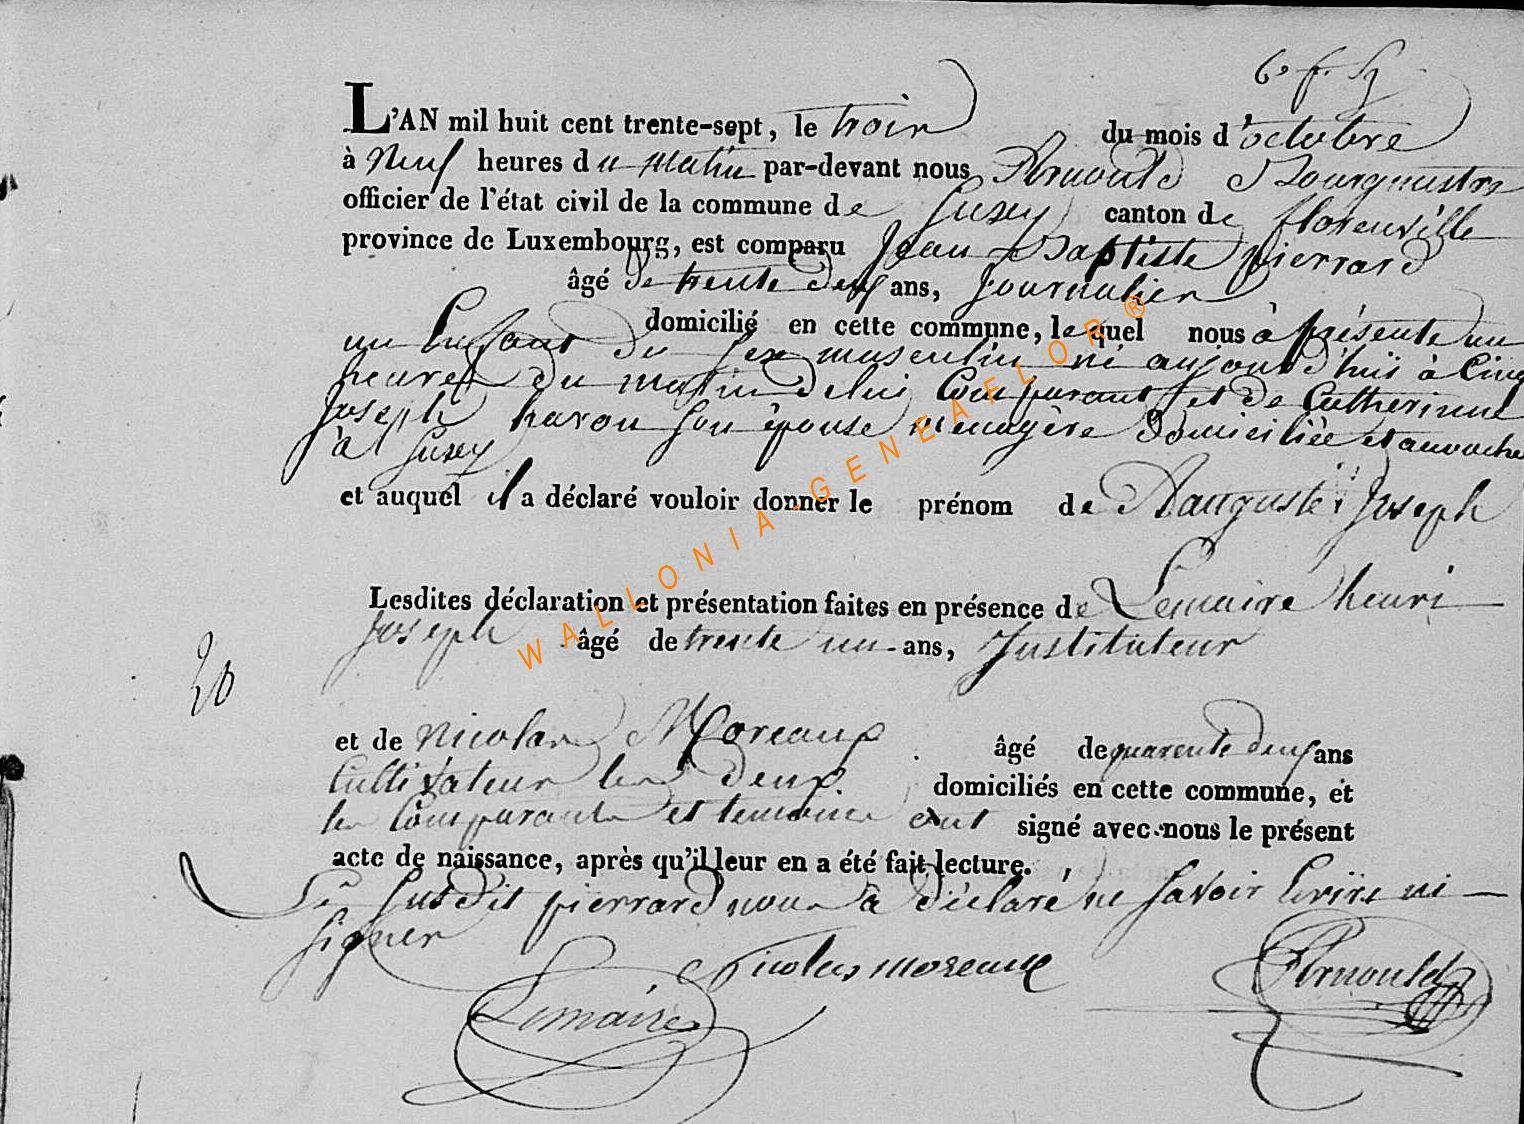 6e f. 
L'AN mil huit cent trente-sept, le trois du mois d'octobre
à neuf heures du matin par-devant nous Arnould Bourgmestre
officier de l'état civil de la commune de Suxy canton de florenville
province de Luxembourg, est comparu Jean Baptiste pierrard
âgé de trente deux ans, Journalier
domicilié en cette commune, lequel nous à présenté un
un Enfant du sex masculin né aujourd'hui à Cinq
heures du matin de lui Comparant et de Catherinne
Joseph havon son épouse menagère domiciliée et accouchée
à Suxy
et auquel il a déclaré vouloir donner le prénom de Aauguste Joseph
Lesdites déclaration et présentation faites en présence de Lemaire henri
Joseph âgé de trente un ans, Instituteur
20
et de Nicolas Moreaux âgé de quarente deux ans
Cultivateur les deux domiciliés en cette commune, et
les Comparants et temoins ont signé avec nous le présent
acte de naissance, après qu'il leur en a été fait lecture.
Le susdit pierrard nous a déclaré ne savoir Ecrire ni
signer
Nicolas moreaux
Arnould
Lemaire
WALLONIA-GENEAFLOR®